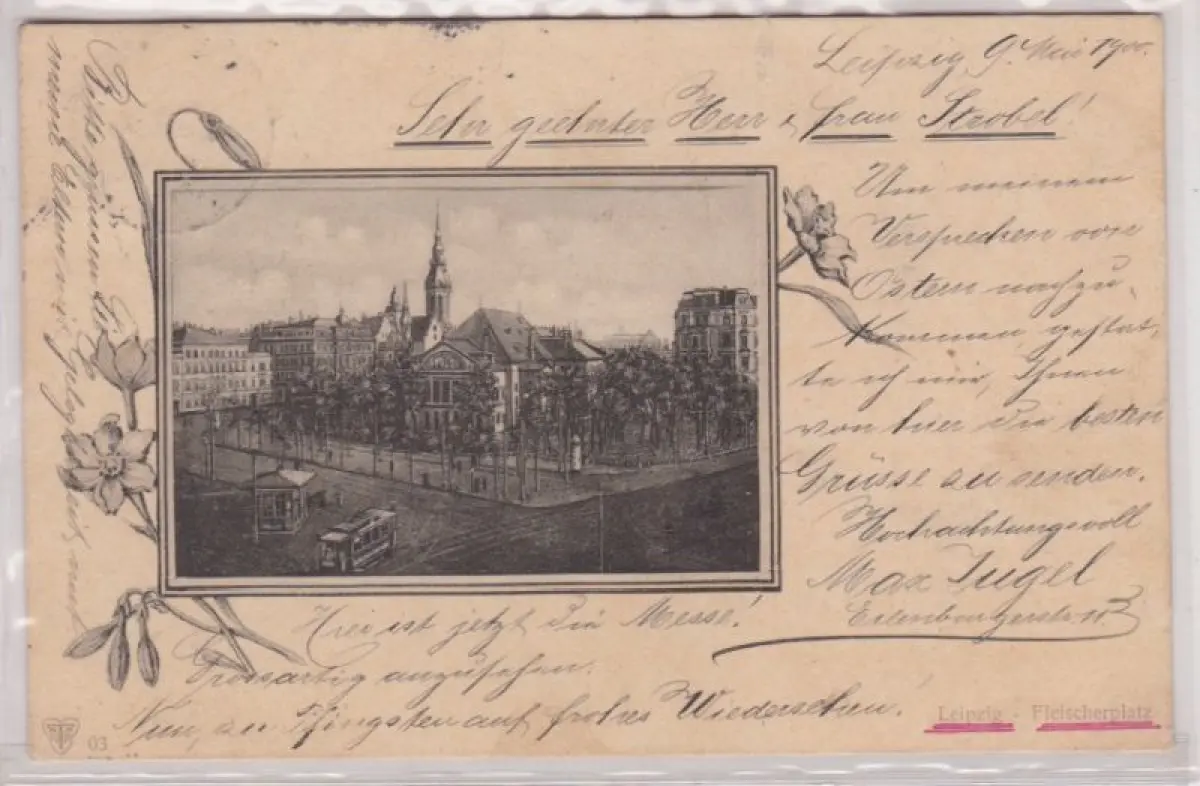 Leipzig, 9. Mai 1900.
Sehr geehrter Herr & Frau Strobel!
Um meinem
Versprechen von
Ostern nachzu-
kommen gestat-
te ich mir, Ihnen
von hier die besten
Grüsse zu senden.
Hochachtungsvoll
Max
Hier ist jetzt die Messe!
Grossartig anzusehen.
Nun, zu Pfingsten auf frohes Wiedersehen.
Bitte
meine Eltern
03
Leipzig - Fleischerplatz